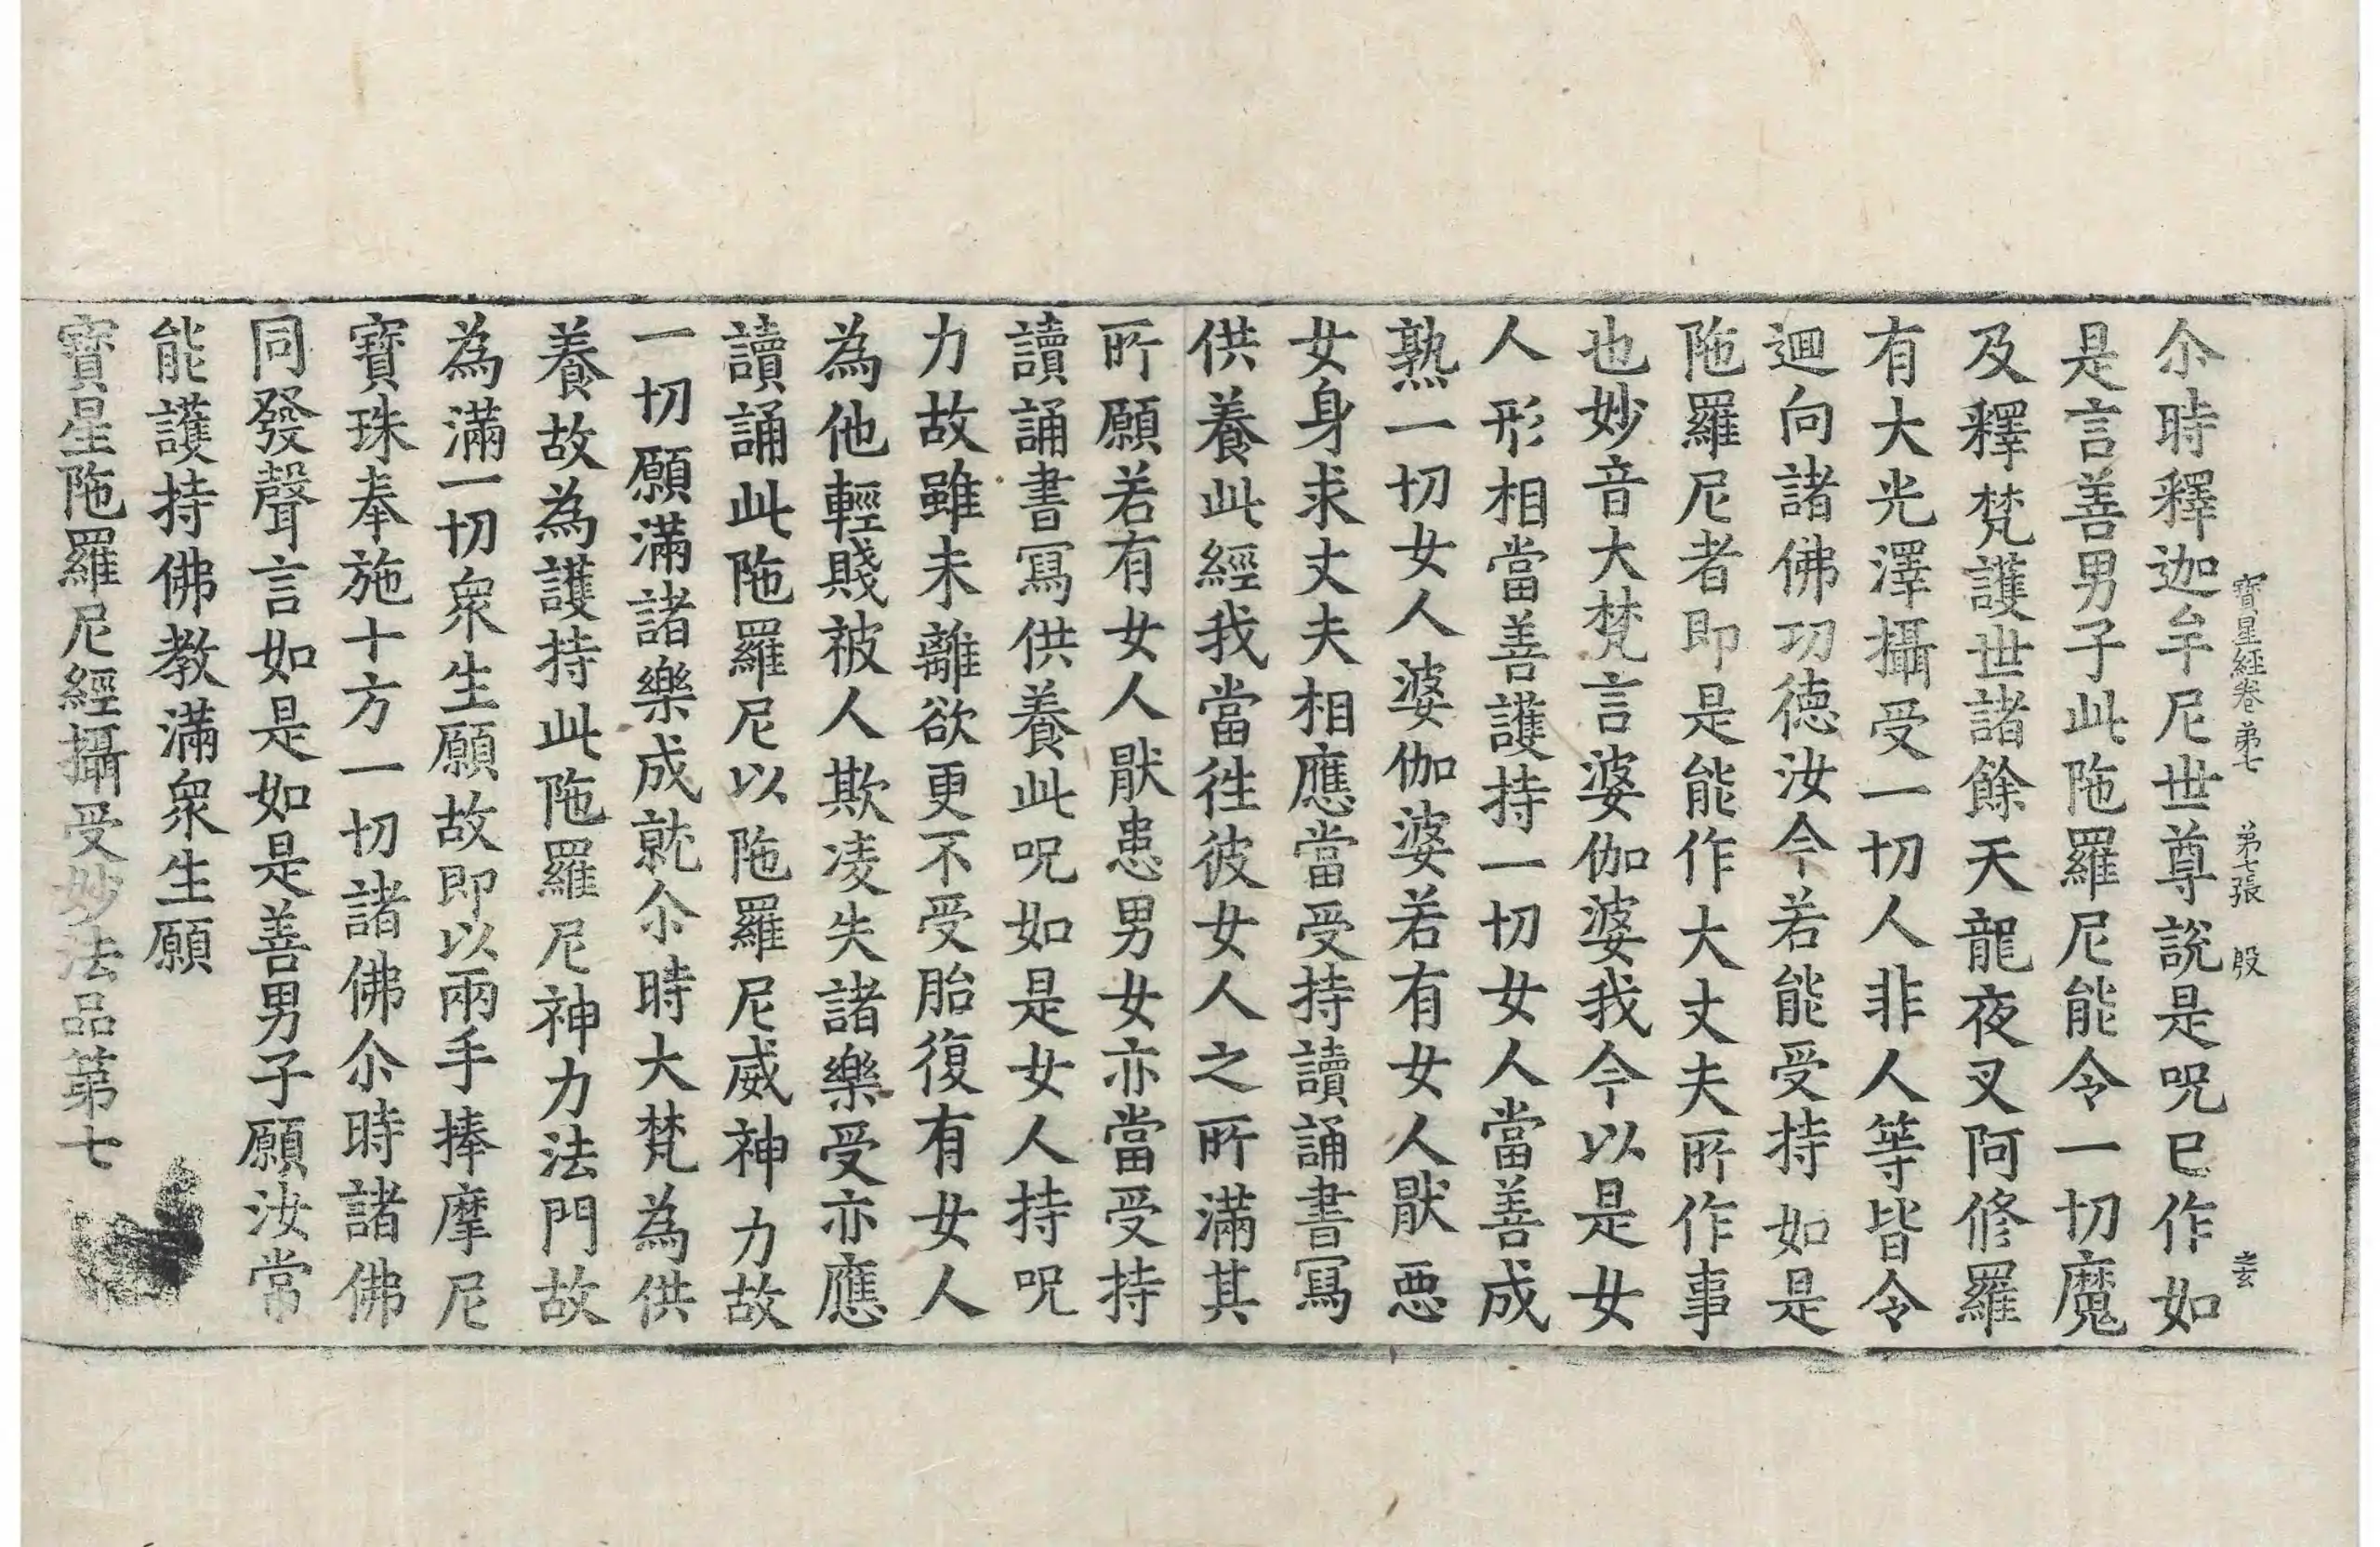 寶星經卷苐七　苐七張　殷　之玄
尒時釋迦牟尼世尊說是呪已作如
是言善男子此陁羅尼能令一切魔
及釋梵護世諸餘天龍夜叉阿修羅
有大光澤攝受一切人非人等皆令
迴向諸佛功徳汝今若能受持如是
陁羅尼者即是能作大丈夫所作事
也妙音大梵言婆伽婆我今以是女
人形相當善護持一切女人當善成
熟一切女人婆伽婆若有女人猒惡
女身求丈夫相應當受持讀誦書寫
供養此經我當往彼女人之所滿其
所願若有女人猒患男女亦當受持
讀誦書寫供養此呪如是女人持呪
力故雖未離欲更不受胎復有女人
為他輕賤被人欺凌失諸樂受亦應
讀誦此陁羅尼以陁羅尼威神力故
一切願滿諸樂成就尒時大梵為供
養故為護持此陁羅尼神力法門故
為滿一切衆生願故即以兩手捧摩尼
寶珠奉施十方一切諸佛尒時諸佛
同發聲言如是如是善男子願汝常
能護持佛教滿衆生願
寶星陁羅尼經攝受妙法品第七